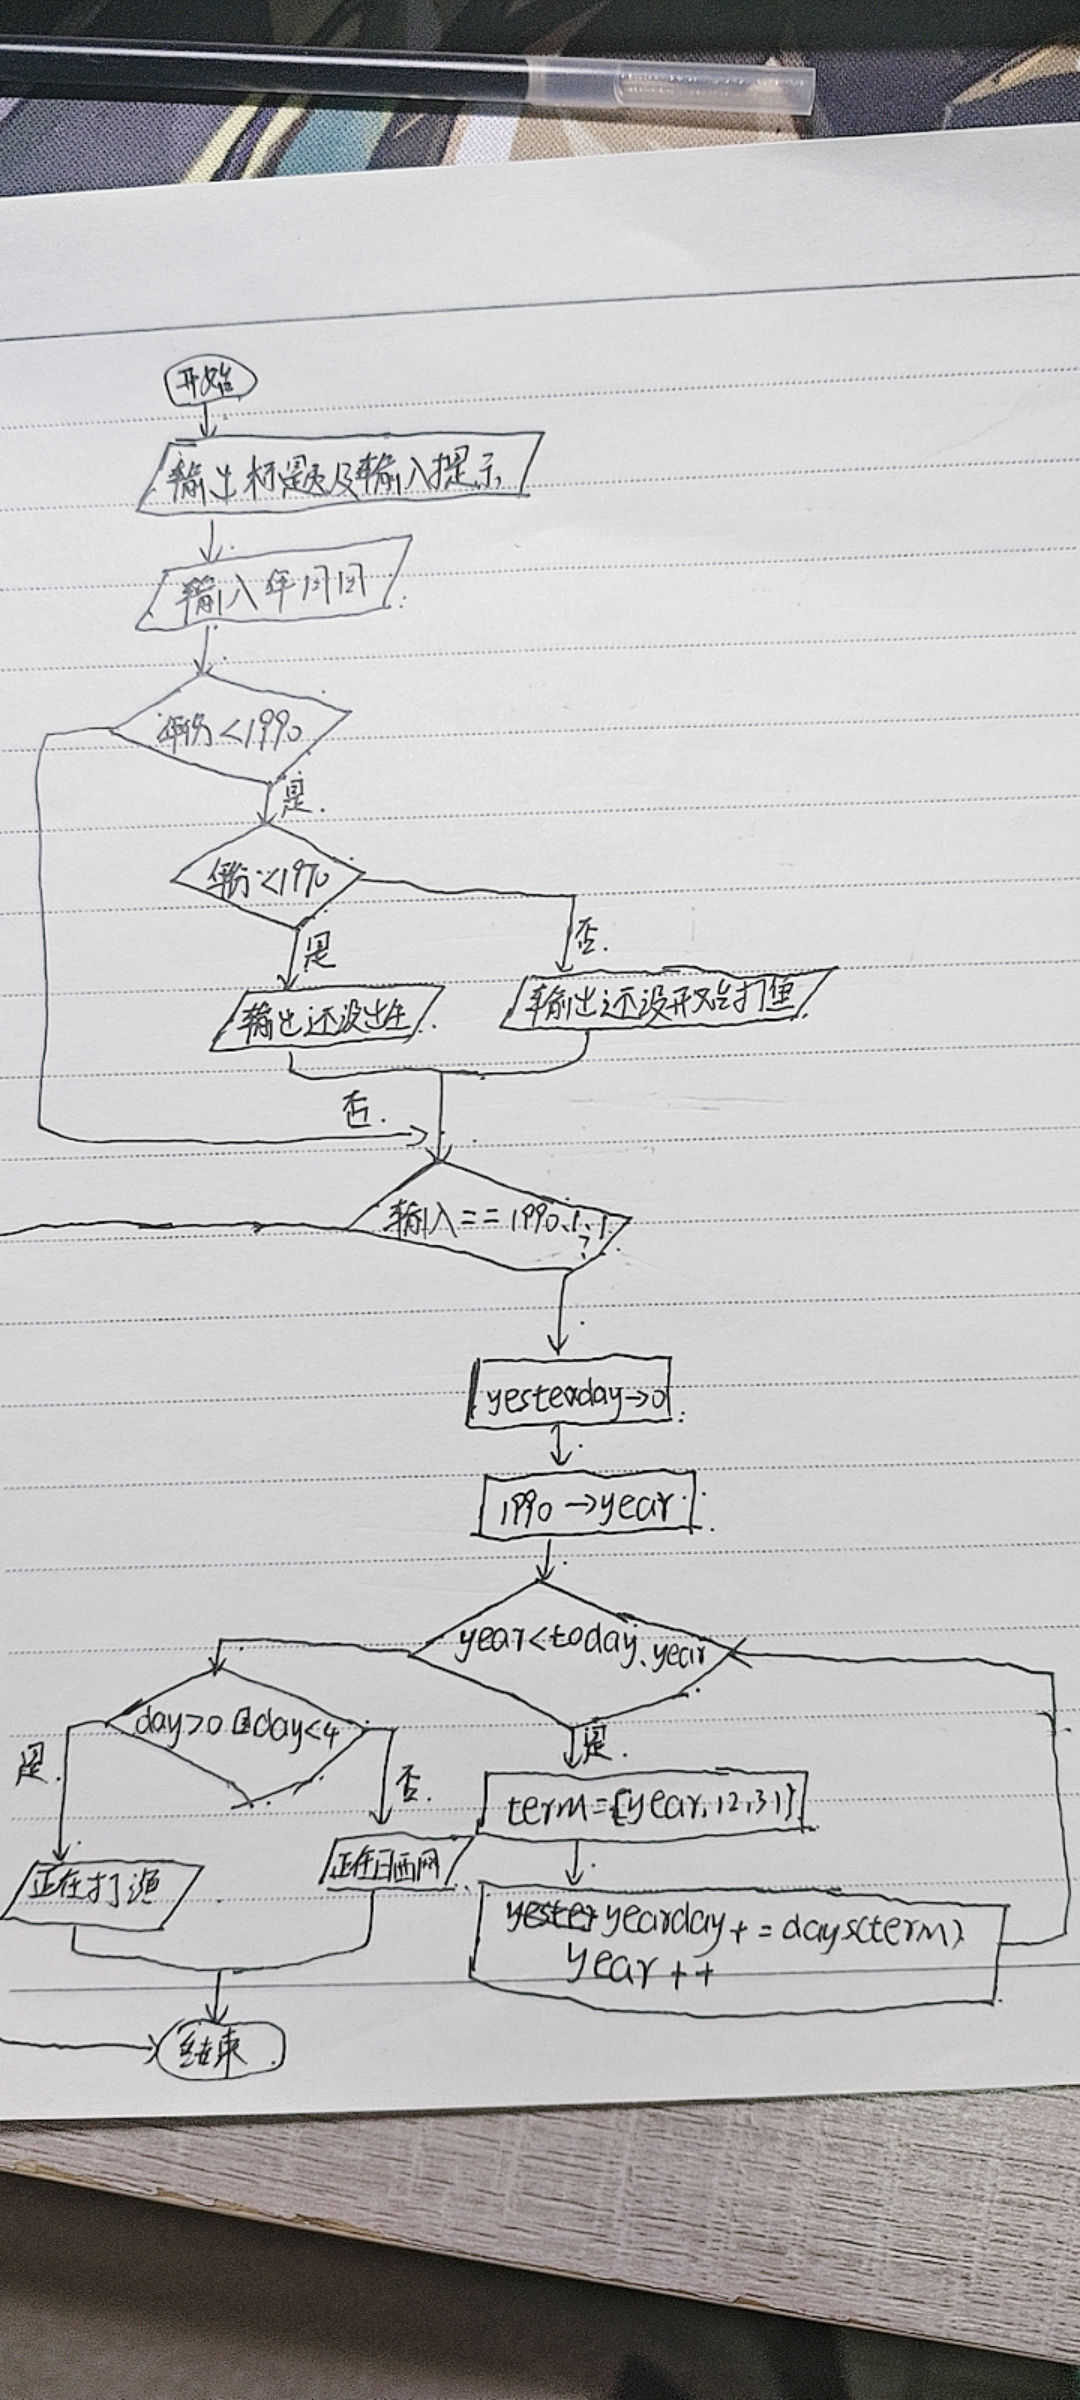 开始
输出标题及输入提示
输入年月日
年份<1990
是.
年份<1970
是
否.
输出还没出生
输出还没开始打鱼
否.
输入==1990.1.1
?
yesterday→0
1990→year
year<today.year
day>0且day<4
是.
否.
是.
term={year,12,31}
正在打渔
正在晒网
yearday+=days(term)
year++
结束